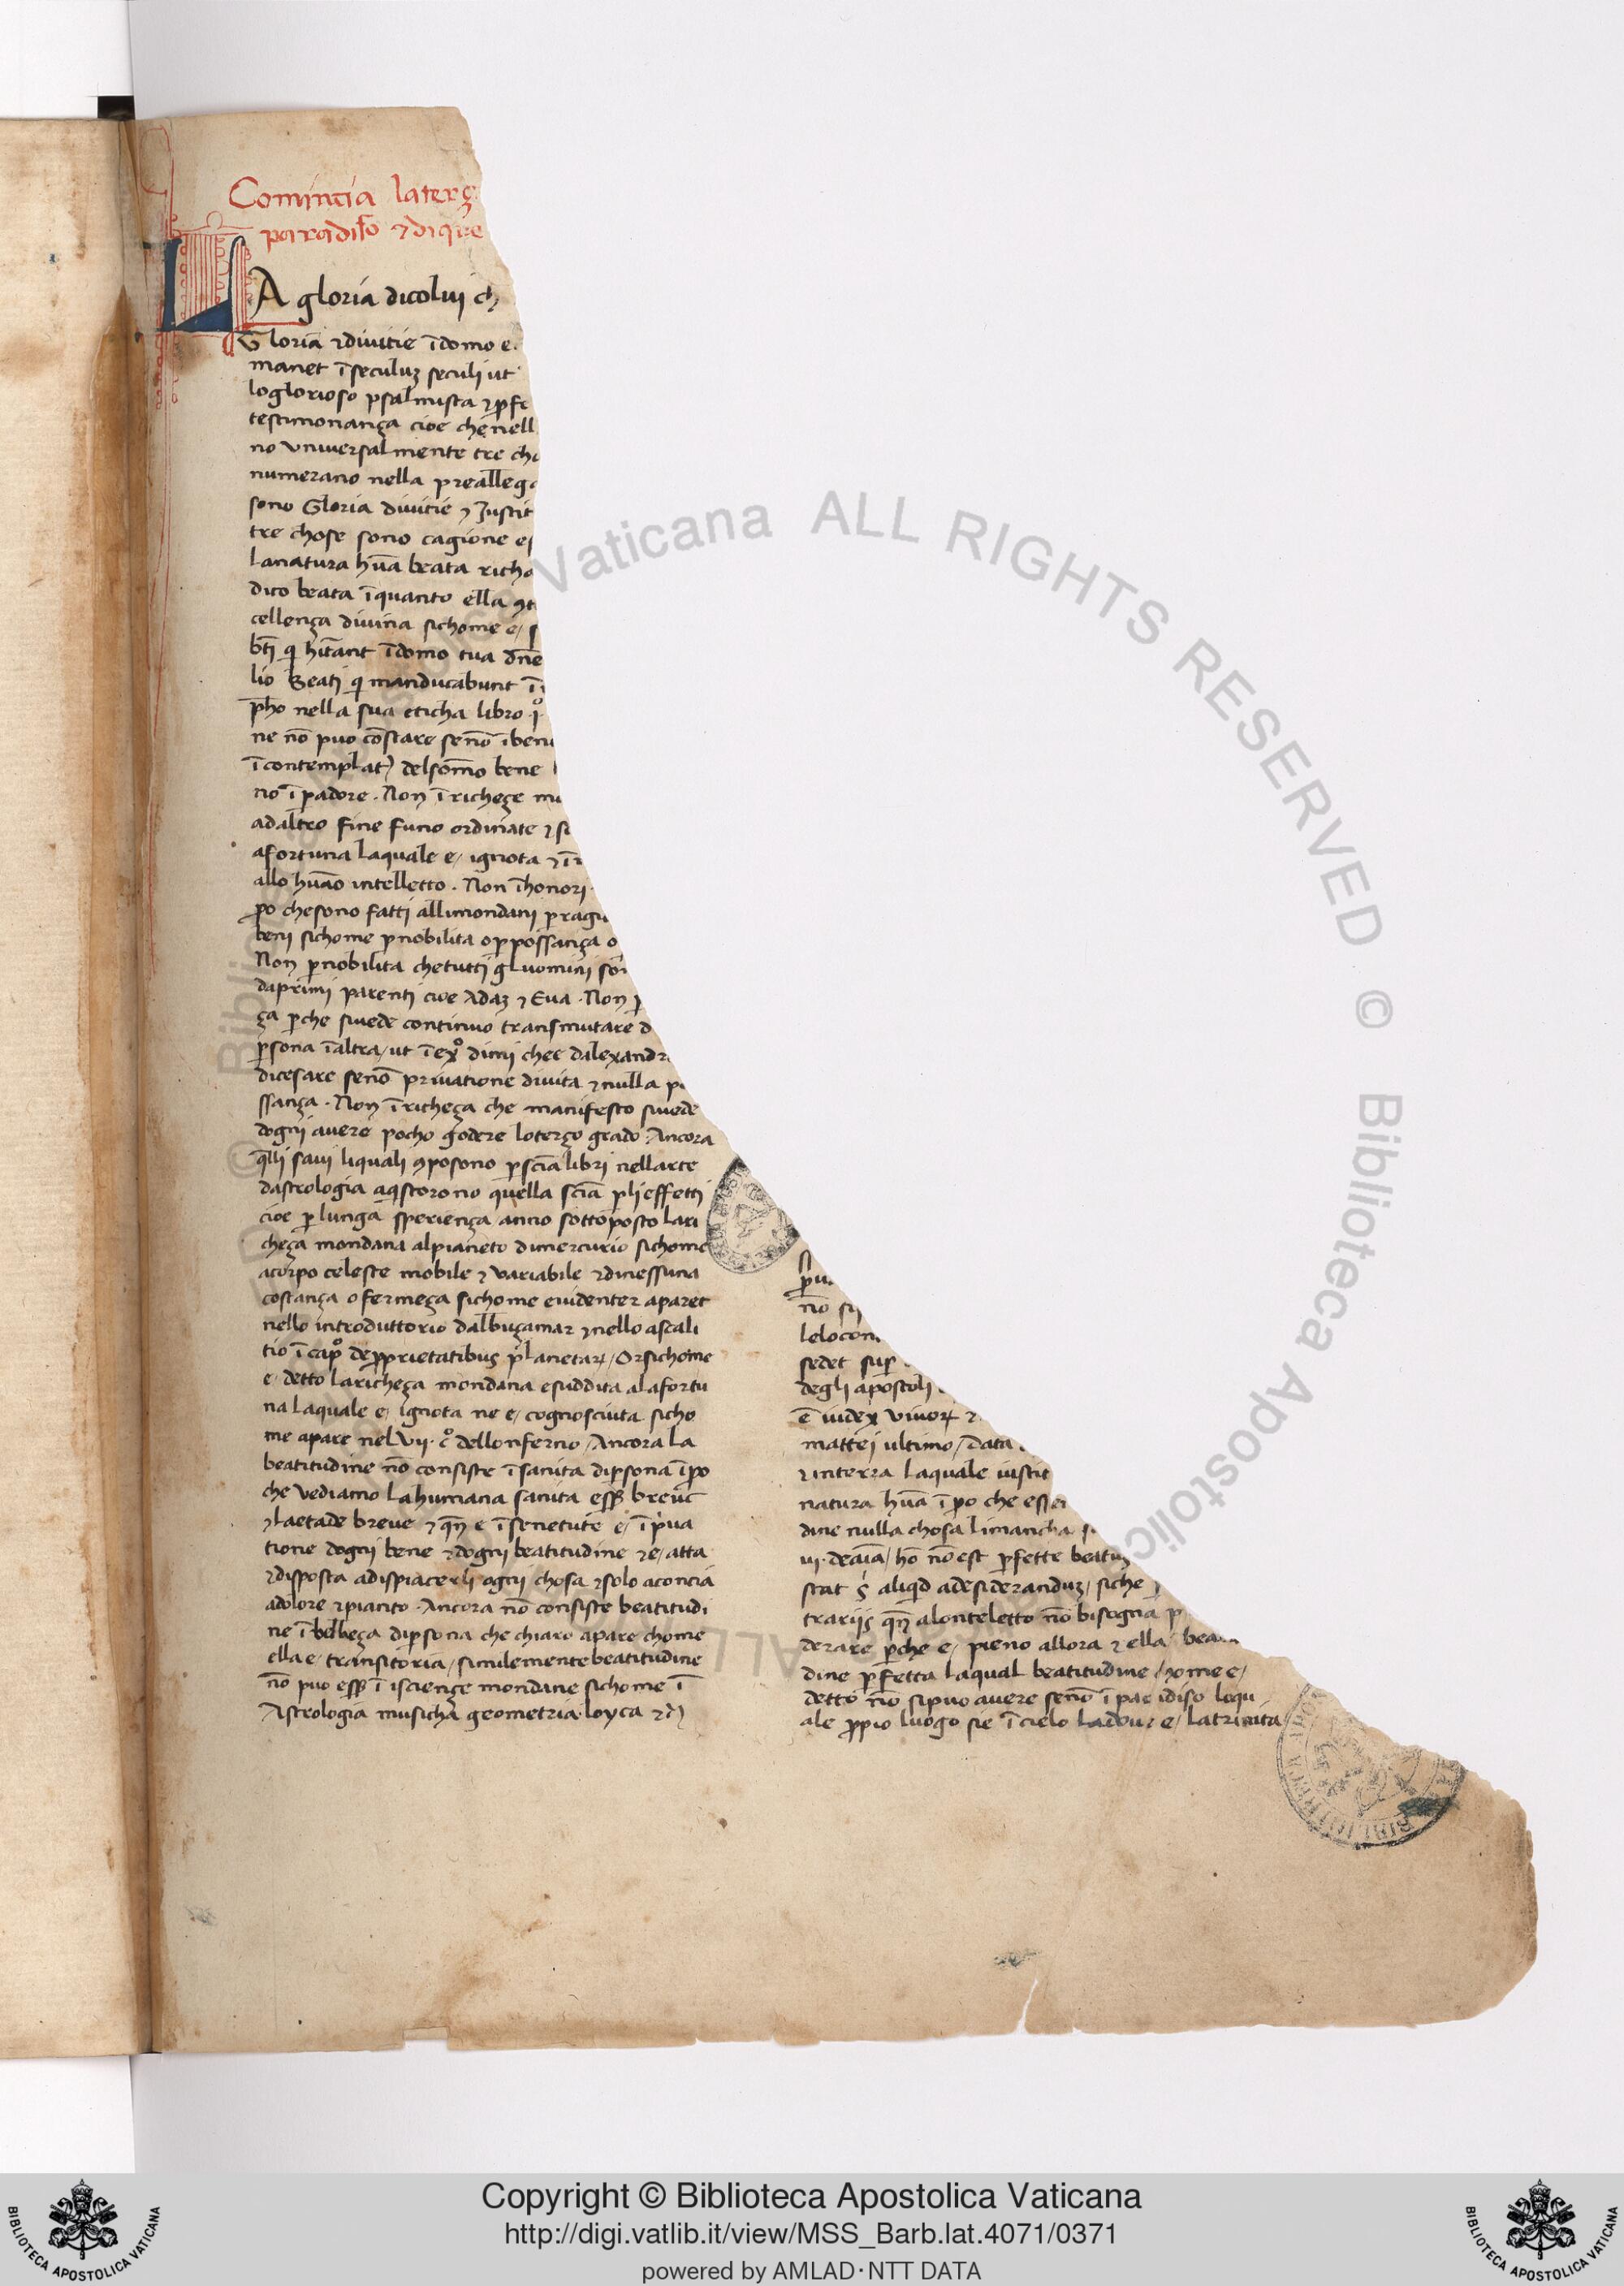 Comincia laterç
paradiso ⁊dique
LA gloria dicolui ch
Gloria ⁊diuitie ī domo e
manet ī seculuȝ seculi ut
loglorioso psalmista ⁊ ꝓfe
testimonança cioe chenell
no vniuersalmente tre cho
numerano nella preallega
sono Gloria diuitie ⁊ Justit
tre chose sono cagione
lanatura hūa beata richa
dico beata ī quanto ella
cellença diuina sichome e/
bt̄i qi hītant ī domo tua dn̄e
lio Beati qi manducabunt ī
ph̄o nella sua eticha libro
ne nō puo cōstare senō
ī contemplat) delsom̄o bene
no ī ꝑadore . Non ī richeçe
adaltro fine funo ordinate ⁊
afortuna laquale e/ ignota ⁊
allo hūao intelletto . Non ī honori
ꝑo chesono fatti allimondani ꝑ
beni sichome ꝑnobilita oꝑ possança o
Non ꝑnobilita chetutti gluomini son
daprimi parenti cioe Adaȝ ⁊ Eua . Non
ça ꝑche siuede continuo transmutare d
ꝑsona ī altra/ ut ī exº dimi chee dalexandr
dicesare senō priuatione diuita ⁊nulla
ssança . Non ī richeça che manifesto siuede
dogni auere pocho godere loterço grado . Ancora
q̄lli saui liquali ꝯposono ꝑ sciā libri nellarte
dastrologia aqistorono quella sciā ꝑ li effetti
cioe ꝑ lunga speriença anno sottoposto lari
cheça mondana alpianeto dimercurio sichome
acorpo celeste mobile ⁊ variabile ⁊dinessuna
costança o fermeça sichome euidenter aparet
nello introduttorio dalbuçamar ⁊nello
tio ī capº de ꝓprietatibus planetaꝝ/ Orsichome
e/ detto laricheça mondana esuddita alafortu
na laquale e/ ignota ne e/ cognosciuta sicho
me apare nel vii . cº dellonferno / Ancora la
beatitudine nō consiste ī sanita diꝑsona ī ꝑo
che vediamo lahumana sanita ess̄ breue
⁊laetade breue ⁊ qn̄ e ī senetute e/ ī pua
tione dogni bene ⁊dogni beatitudine ⁊e/ atta
⁊disposta adispiacerli ogni chosa ⁊solo aconcia
adolore ⁊pianto . Ancora nō consiste beatitudi
ne ī belleça diꝑsona che chiaro apare chome
ella e/ transitoria / similemente beatitudine
nō puo ess̄ ī isciençe mondane sichome ī
Astrologia musicha geometria loyca ⁊
nō
lelocon
sedet suꝑ
degli apostoli
ē iudex viuoꝝ ⁊
mattei ultimo / Data
⁊ interra laquale iustit
natura hūa ī ꝑo che
dine nulla chosa limancha
vi . deaīa / hō nō est ꝑfette beatus
stat aliqd adesiderandu / siche
trariis qn̄ alonteletto nō bisogna
derare ꝑche e/ pieno allora ⁊ ella bea
dine ꝑfetta laqual beatitudine chome e/
detto nō sipuo auere senō ī paradiso loqu
ale ꝓpio luogo sie ī cielo ladoue e/ latrinita
Copyright © Biblioteca Apostolica Vaticana
http://digi.vatlib.it/view/MSS_Barb.lat.4071/0371
powered by AMLAD·NTT DATA
BIBLIOTECA APOSTOLICA VATICANA
BIBLIOTECA APOSTOLICA VATICANA
© Biblioteca Apostolica Vaticana ALL RIGHTS RESERVED